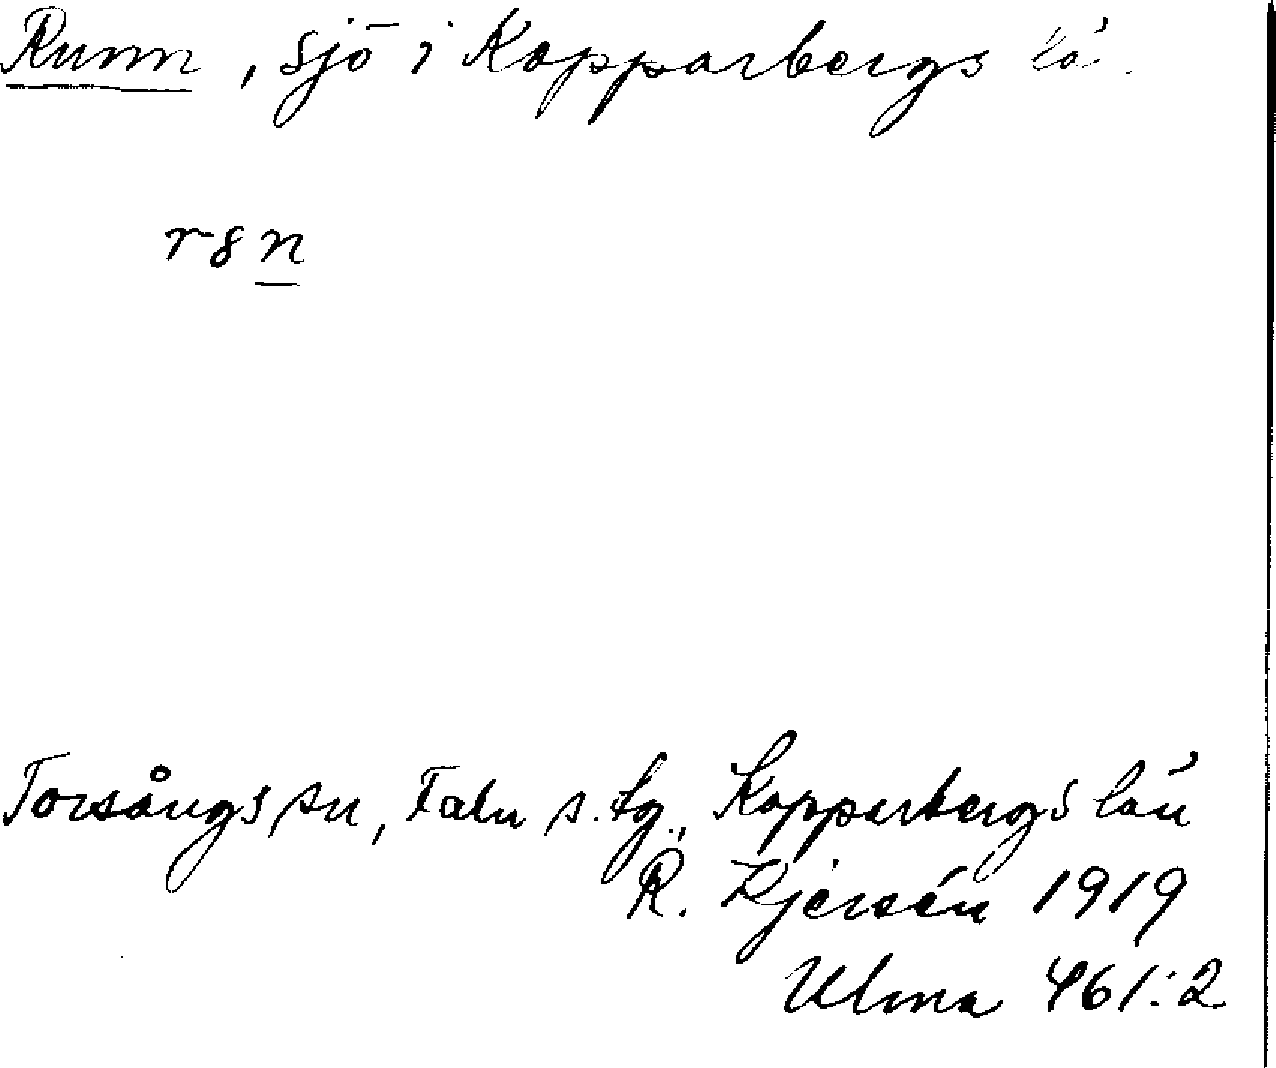 Runn, sjö i Kopparbergs lä.
r8n
Torsångs sn, Falu s. tg., Kopparbergs län
R. Ljersén 1919
Ulma 461:2